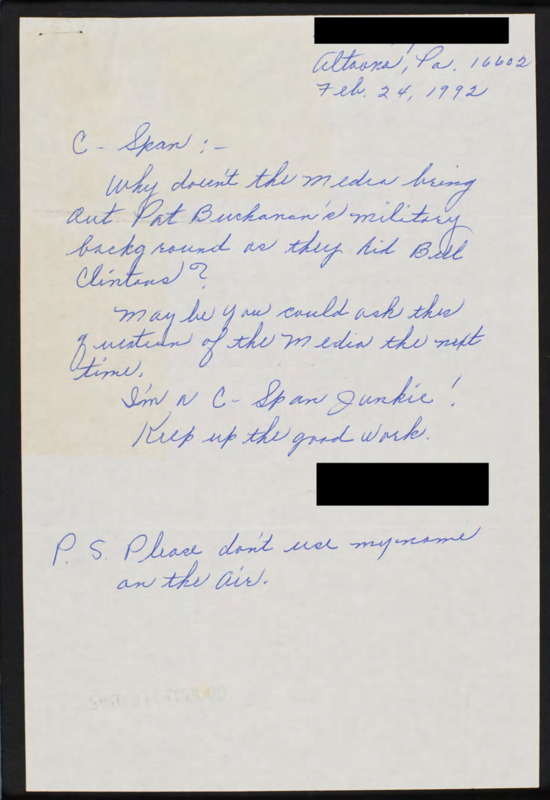 Altoona, Pa. 16602
Feb. 24, 1992
C - Span : -
Why doesn't the media bring
out Pat Buchanan's military
background as they did Bill
Clintons?
May be you could ask this
question of the Media the next
time.
I'm a C - Span Junkie!
Keep up the good work.
P. S. Please don't use my name
on the air.